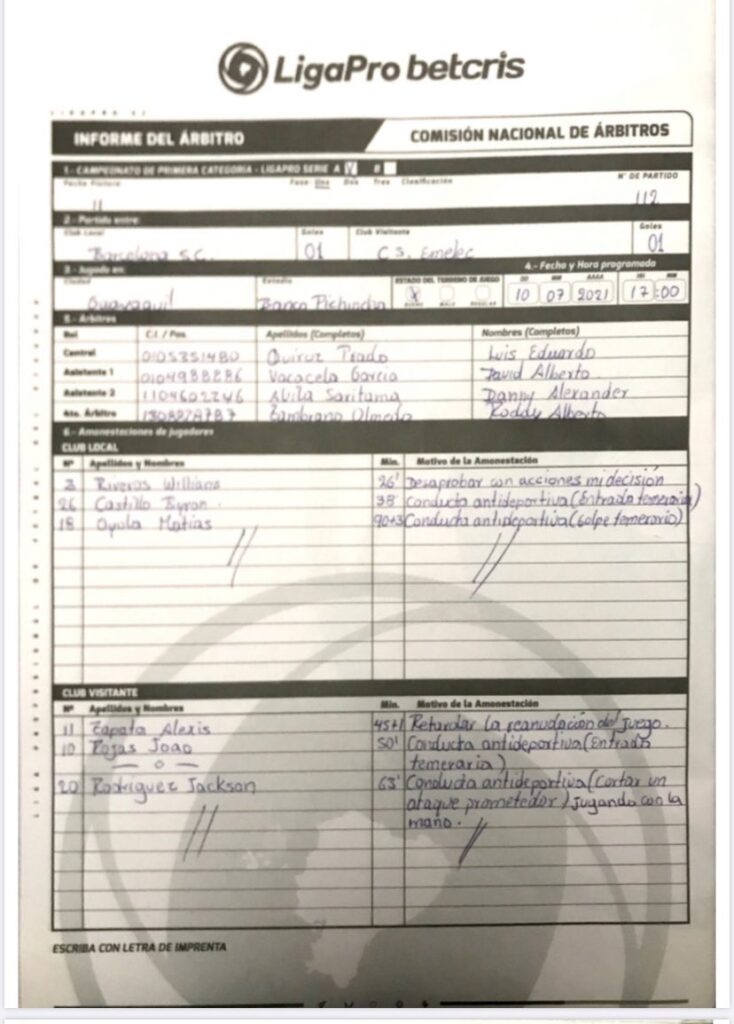 LigaPro betcris
INFORME DEL ÁRBITRO
COMISIÓN NACIONAL DE ÁRBITROS
1.- CAMPEONATO DE PRIMERA CATEGORIA - LIGAPRO SERIE A B
Fecha Fase Una Dos Tres Clasificación Nº DE PARTIDO
11 112
2.- Partido entre:
Club Local Goles Club Visitante Goles
Barcelona S.C. 01 C.S. Emelec 01
3.- Jugado en: 4.- Fecha y Hora programada
Ciudad Estadio ESTADO DEL TERRENO DE JUEGO DD MM AAAA HH MM
Guayaquil Banco Pichincha X 10 07 2021 17:00
BUENO MALO REGULAR
5.- Árbitros
Rol C.I. / Pas. Apellidos (Completos) Nombres (Completos)
Central 0105351480 Quiroz Prado Luis Eduardo
Asistente 1 0104988286 Vacacela Garcia David Alberto
Asistente 2 1104602246 Avila Saritama Danny Alexander
4to. Árbitro Zambrano Olmedo Roddy Alberto
6.- Amonestaciones de jugadores
CLUB LOCAL
Nº Apellidos y Nombres Min. Motivo de la Amonestación
3 Riveros Williams 26' Desaprobar con acciones mi decisión
26 Castillo Byron. 38' Conducta antideportiva (Entrada temeraria)
18 Oyola Matias 90+3 Conducta antideportiva (Golpe temerario)
CLUB VISITANTE
Nº Apellidos y Nombres Min. Motivo de la Amonestación
11 Zapata Alexis 45+1 Retardar la reanudación del juego.
10 Rojas Joao 50' Conducta antideportiva (Entrada
— o — temeraria)
20 Rodriguez Jackson 63' Conducta antideportiva (Cortar un
ataque prometedor) Jugando con la
mano.
ESCRIBA CON LETRA DE IMPRENTA